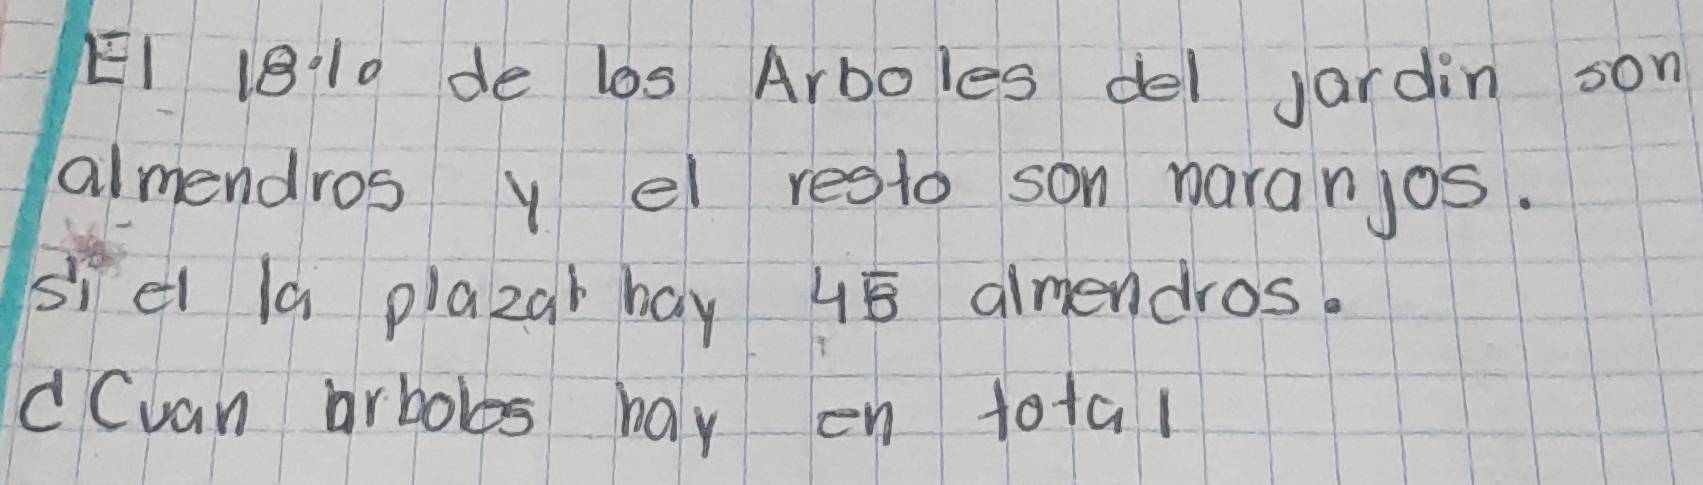 El 18% de los Arboles del jardin son
almendros y el resto son naranjos.
si el la plazat hay 45 almendros.
¿Cuan arboles hay en total